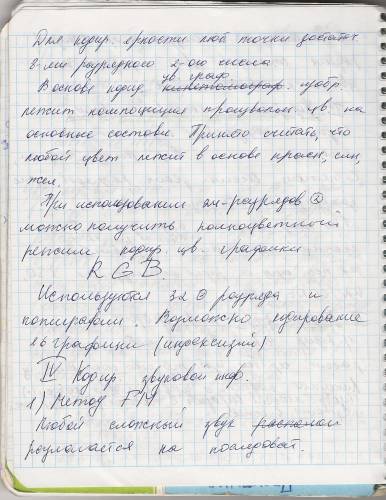 Для кодир. яркости люб точки достат
8-ми разрядного 2-ого числа
цв. граф.
В основе кодир. изобр.
лежит композиция произвольн. цв. на
основные составн. Принято считать, что
любой цвет лежит в основе красн, син,
жел.
При использовании 24-разрядов ②
можно получить полноцветный
режим кодир цв. графики
R G B.
Используются 32 разряда и
Возможно кодирование
16 графики (индексиций)
IV Кодир звуковой инф.
1) Метод FM
Любой сложный звук
разлагается на последоват.